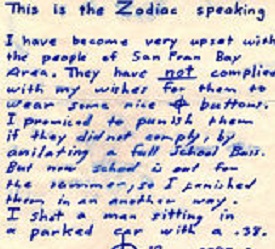 This is the Zodiac speaking
I have become very upset with
the people of San Fran Bay
Area. They have not complied
with my wishes for them to
wear some nice ⌖ buttons.
I promiced to punish them
if they did not comply, by
anilating a full School Buss.
But now school is out for
the summer, so I punished
them in an another way.
I shot a man sitting in
a parked car with a .38.